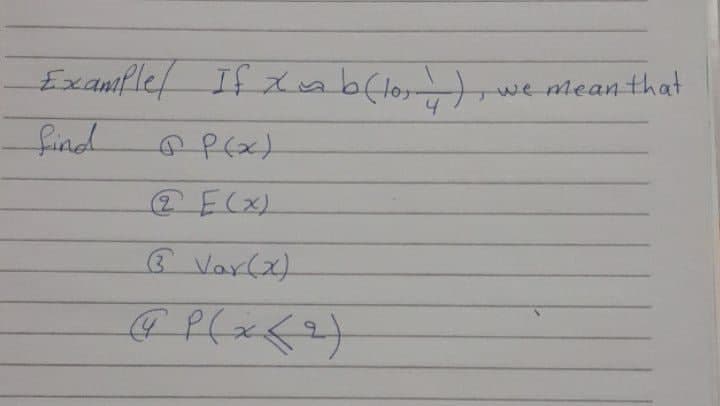 Example/ If x ~ b(10, 1/4), we mean that
find ① P(x)
② E(x)
③ Var(x)
④ P(x ≤ 2)